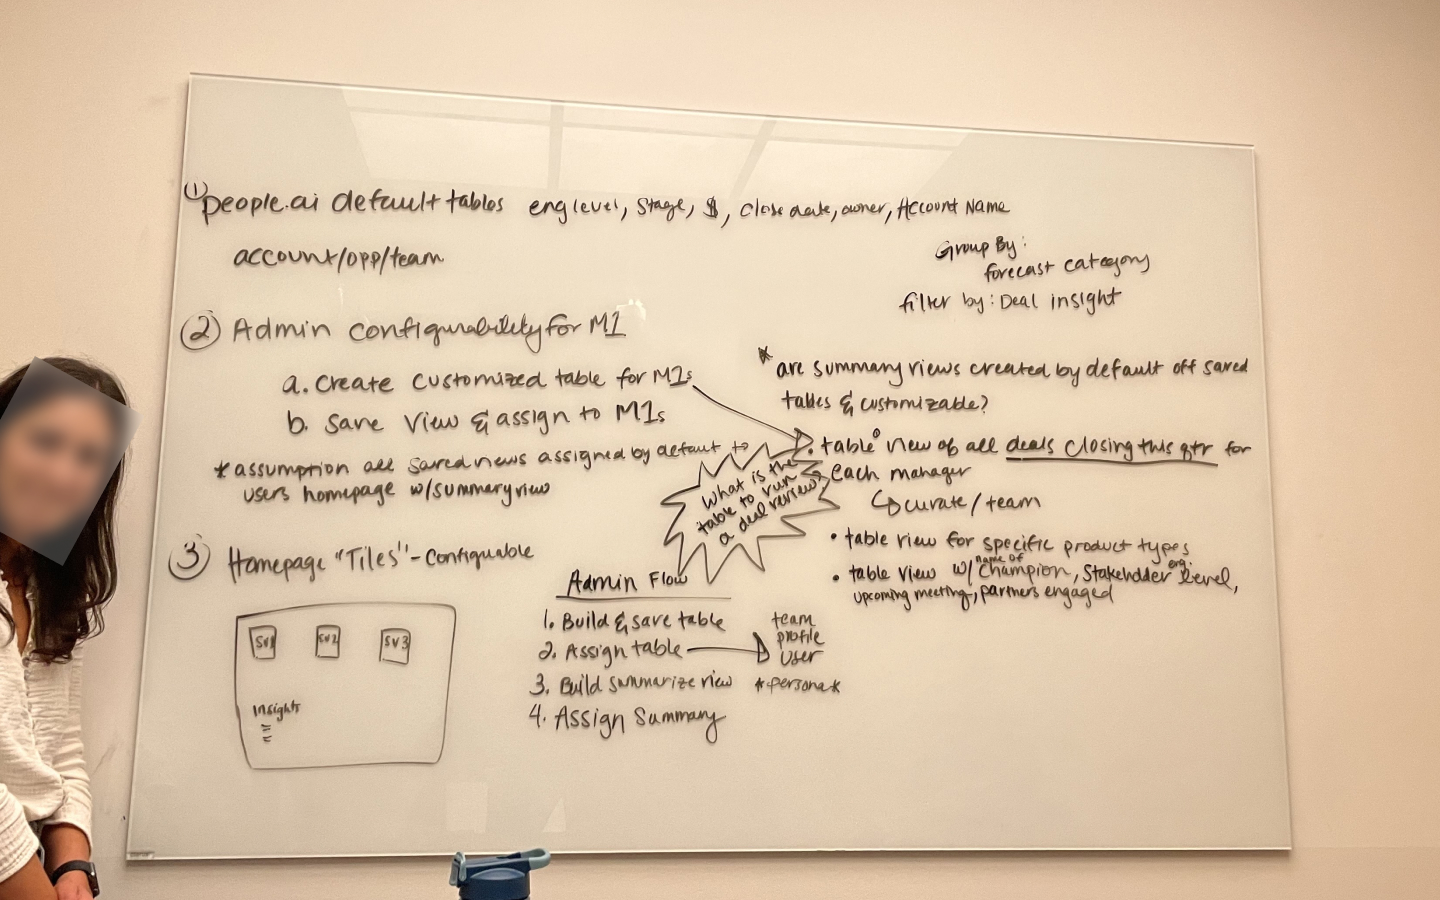 ① people.ai default tables eng level, Stage, $, close date, owner, Account Name
account/opp/team
Group By:
forecast category
filter by: Deal insight
② Admin configurability for M1
a. Create customized table for M1s
b. Save View & assign to M1s
* assumption all saved views assigned by default to
users homepage w/summary view
* are summary views created by default off saved
tables & customizable?
• table view of all deals closing this qtr for
each manager
↳ curate/team
• table view for specific product types
• table view w/ name of champion, Stakeholder org. level,
upcoming meeting, partners engaged
What is the
table to run
a deal review?
③ Homepage "Tiles" - Configurable
SV1 SV2 SV3
Insights
Admin Flow
1. Build & save table
2. Assign table → team
profile
user
*persona*
3. Build summarize view
4. Assign Summary